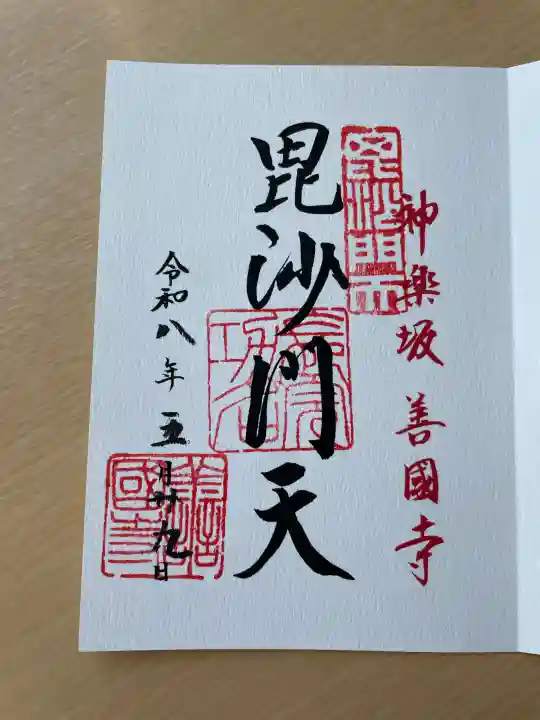 神樂坂 善國寺
毘沙門天
令和八年五月廿九日